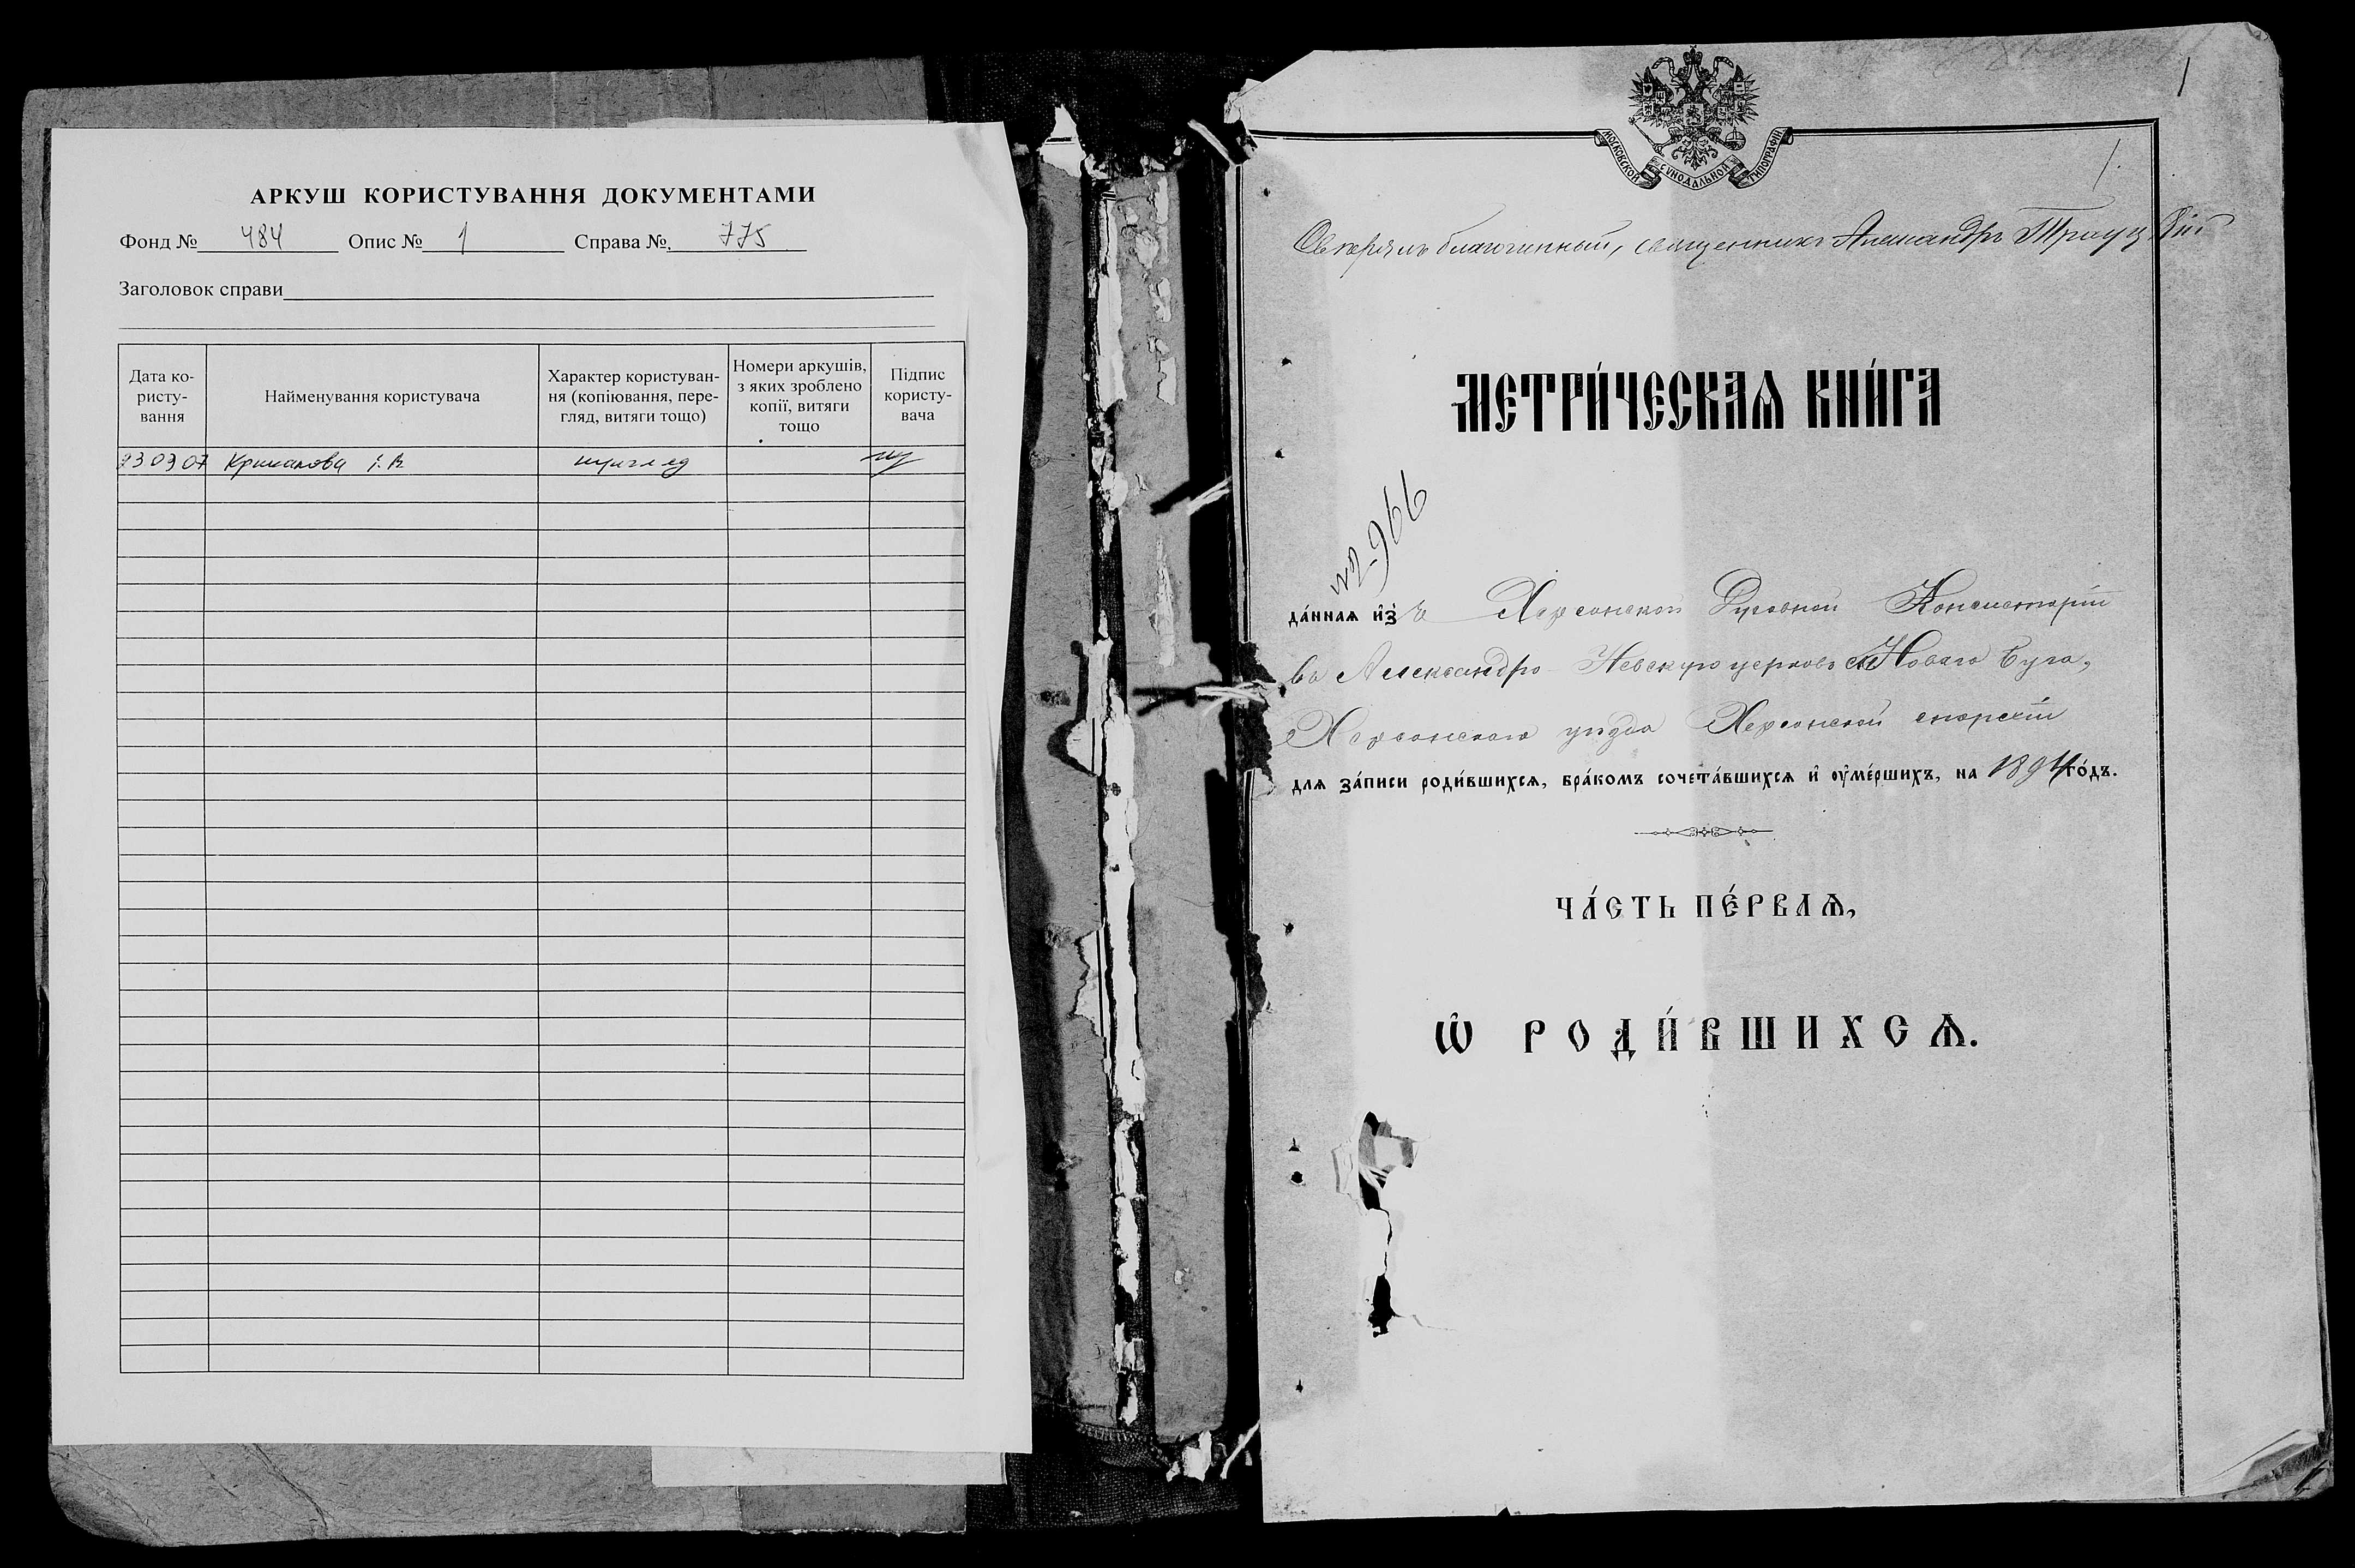 АРКУШ КОРИСТУВАННЯ ДОКУМЕНТАМИ
Фонд № 484 Опис № 1 Справа № 775
Заголовок справи
Дата ко-
ристу-
вання
Найменування користувача
Характер користуван-
ня (копіювання, пере-
гляд, витяги тощо)
Номери аркушів,
з яких зроблено
копії, витяги
тощо
Підпис
користу-
вача
23 03 07
1
МОСКОВСКОЙ СѴНОДАЛЬНОЙ ТИПОГРАФІИ
1.
благочинный, священникъ Александръ
МЕТРИ́ЧЕСКАѦ КНИ́ГА
№ 966
да́ннаѧ и҆зъ Херсонской Духовной Консисторіи
въ Александро-Невскую церковь Новаго Буга,
Херсонскаго уѣзда Херсонской епархіи
длѧ за́писи роди́вшихсѧ, бра́комъ сочета́вшихсѧ и҆ ᲂу҆ме́ршихъ, на 1894 го́дъ.
ЧА́СТЬ ПЕ́РВАѦ,
Ѡ҆ РОДИ́ВШИХСѦ.